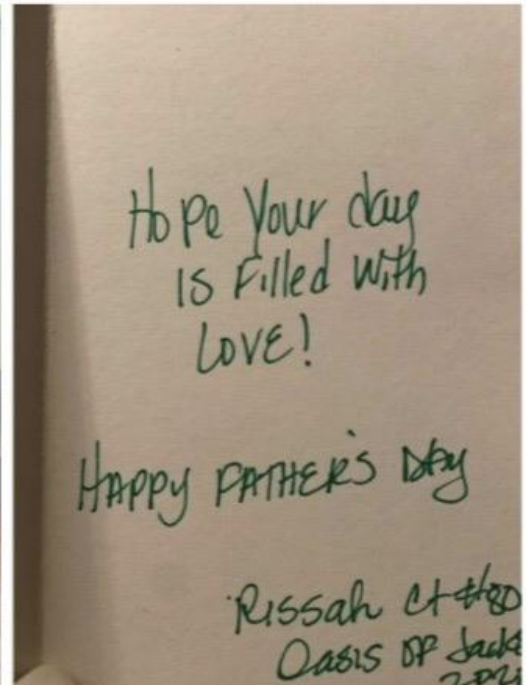 Hope Your day
is Filled With
LOVE!
HAPPY FATHER'S DAY
Rissah Ct #80
Oasis OF